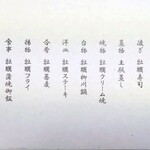 凌ぎ 牡蠣寿司
蓋物 土瓶蒸し
焼物 牡蠣クリーム焼
台物 牡蠣柳川鍋
洋皿 牡蠣ステーキ
合肴 牡蠣蕎麦
揚物 牡蠣フライ
食事 牡蠣蒲焼御飯